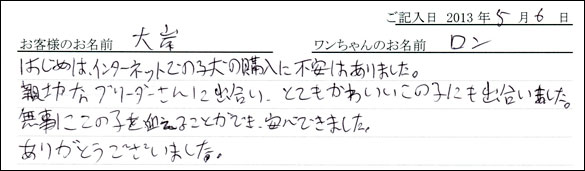 ご記入日 2013年5月6日
お客様のお名前 大岸 ワンちゃんのお名前 ロン
はじめは、インターネットでの子犬の購入に不安はありました。
親切なブリーダーさんに出合い、とてもかわいいこの子にも出合いました。
無事にこの子を迎えることができ、安心できました。
ありがとうございました。